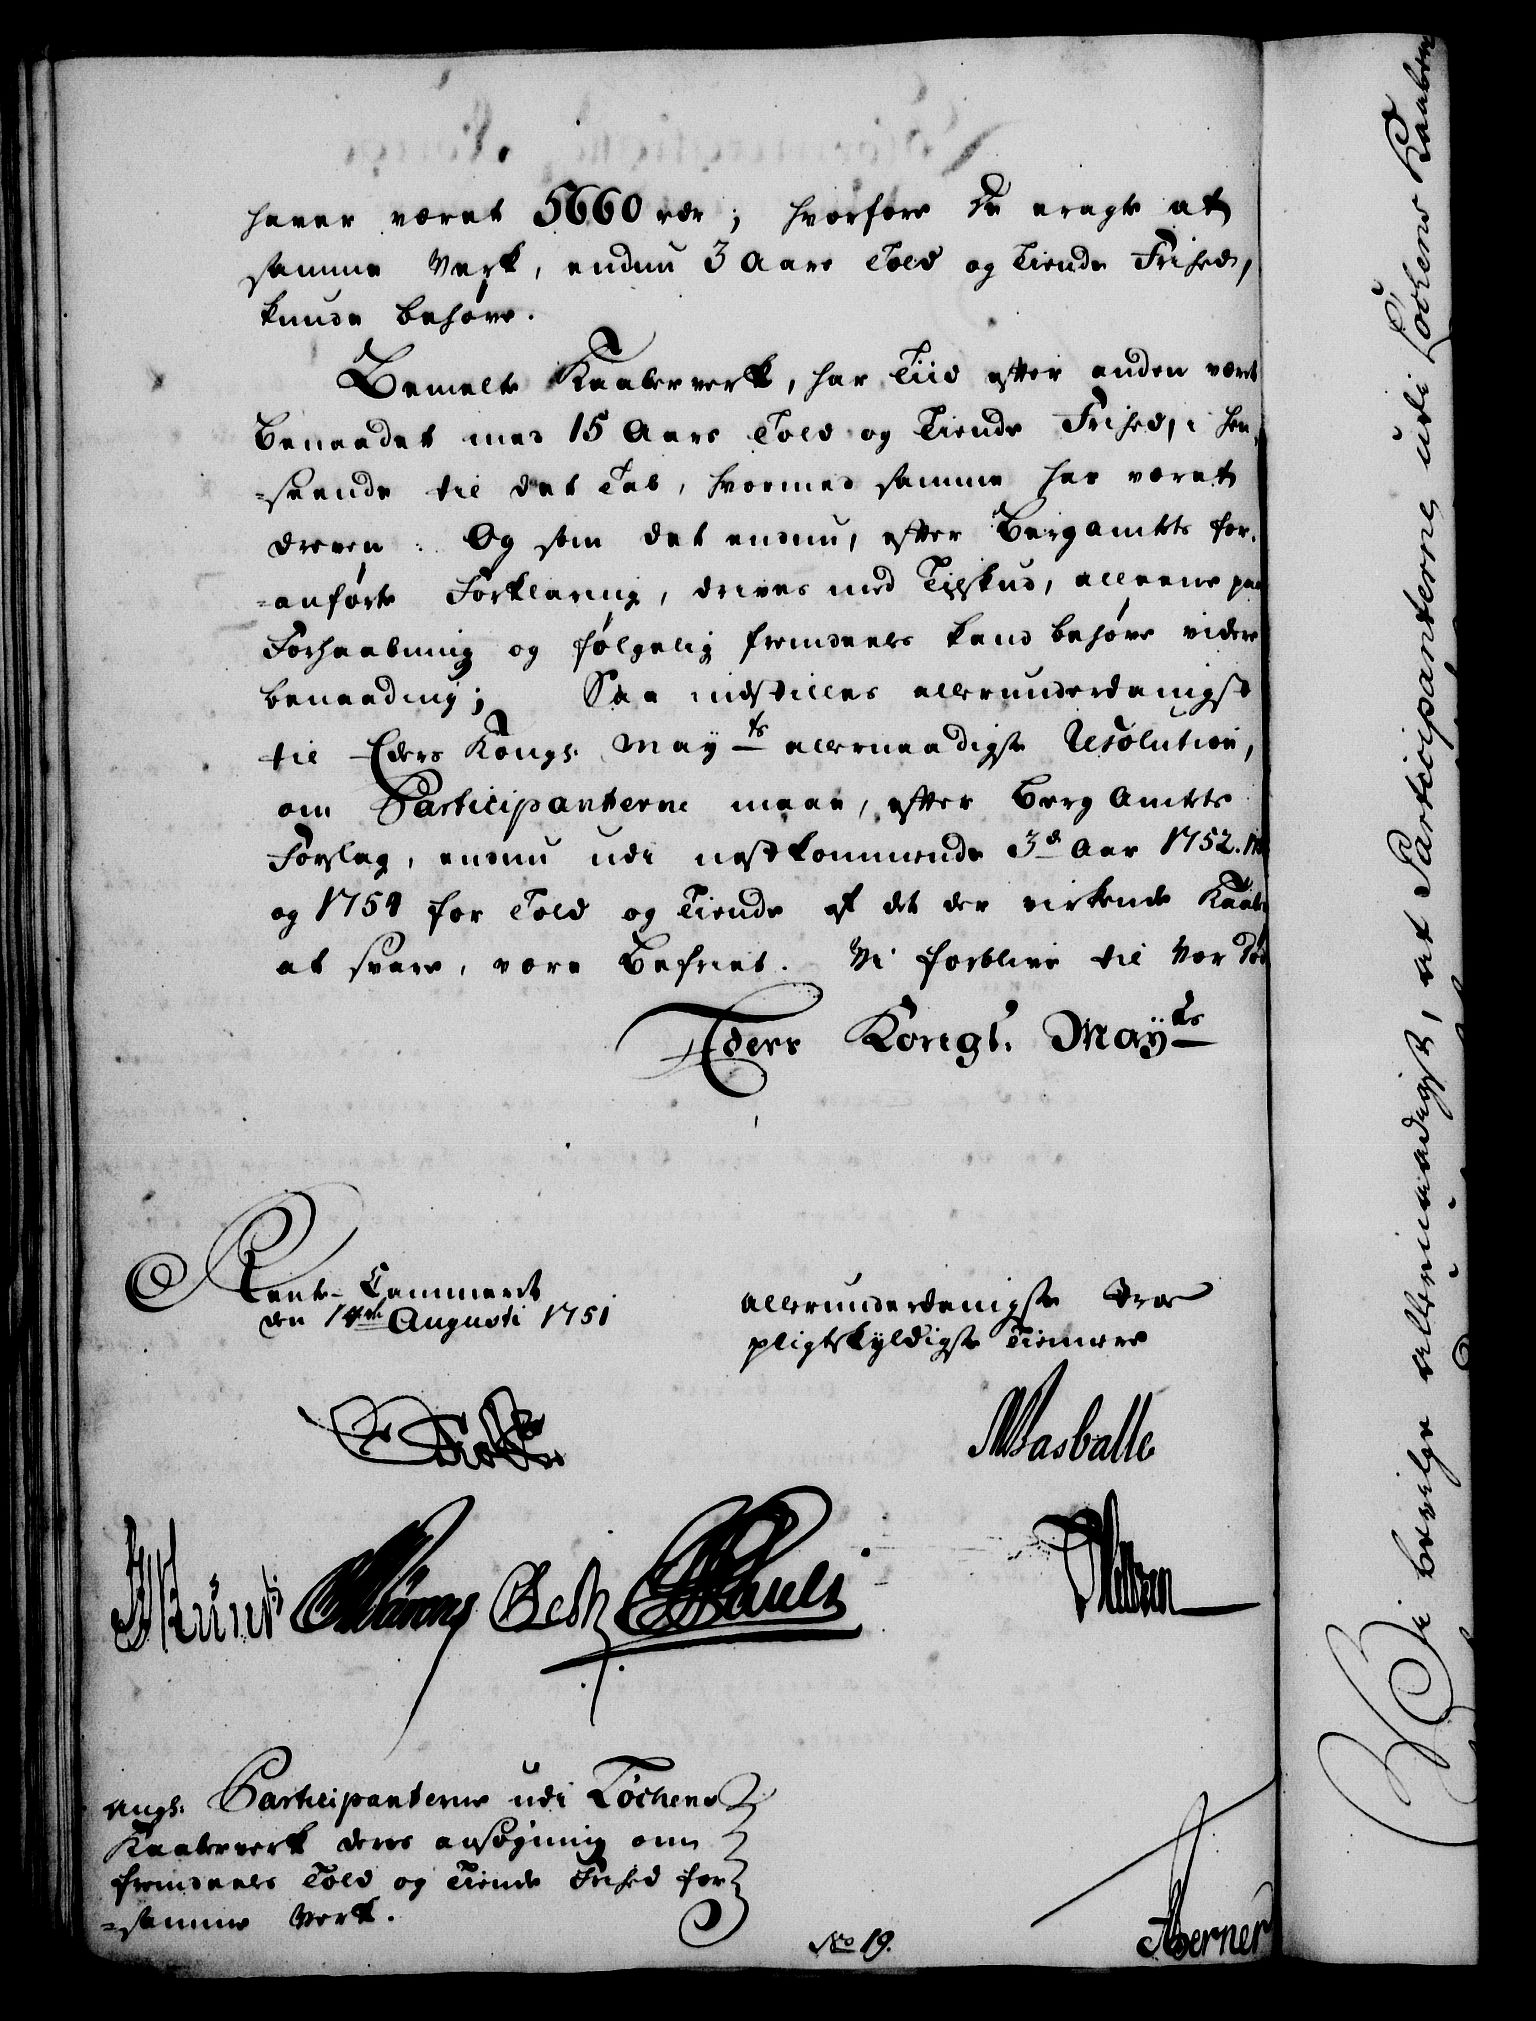 haver været 5660 rdr; hvorfore De eragte at
samme Verk, endnu 3 Aars Told og Tiende Frihed,
kunde behøve.
Bemelte Kaaberverk, har Tiid efter anden været
Benaadet med 15 Aars Told og Tiende Frihed, i hen-
=seende til det Tab, hvormed samme har været
dreven. Og som det endnu, efter Bergamtets for-
=anførte Forklaring, drives med Tilskud, alleene paa
Forhaabning og følgelig fremdeeles kand behøve videre
benaading; Saa indstilles allerunderdanigst
til Eders Kongl. May<sup>ts</sup> allernaadigste Resolution,
om Participanterne maae, efter Berg Amtets
Forslag, endnu udi nestkommende 3<sup>de</sup> Aar 1752.
og 1754 for Told og Tiende af det der virkende Kaaber
at svare, være Befriet. Vi forblive til Vor Død
Eders Kongl. May<sup>ts</sup>
Rente-Cammeret
den 14<sup>de</sup> Augusti 1751
allerunderdanigste troe
pligtskyldigste Tiennere
Masballe
Pauli
angl. Participanterne udi Løchens
Kaaberverk deres ansøgning om
fremdeeles Told og Tiende Frihed for
=samme Verk.
No 19.
Berner
Vi bevilge allernaadigst, at Participanterne udi Lochens Kaaber